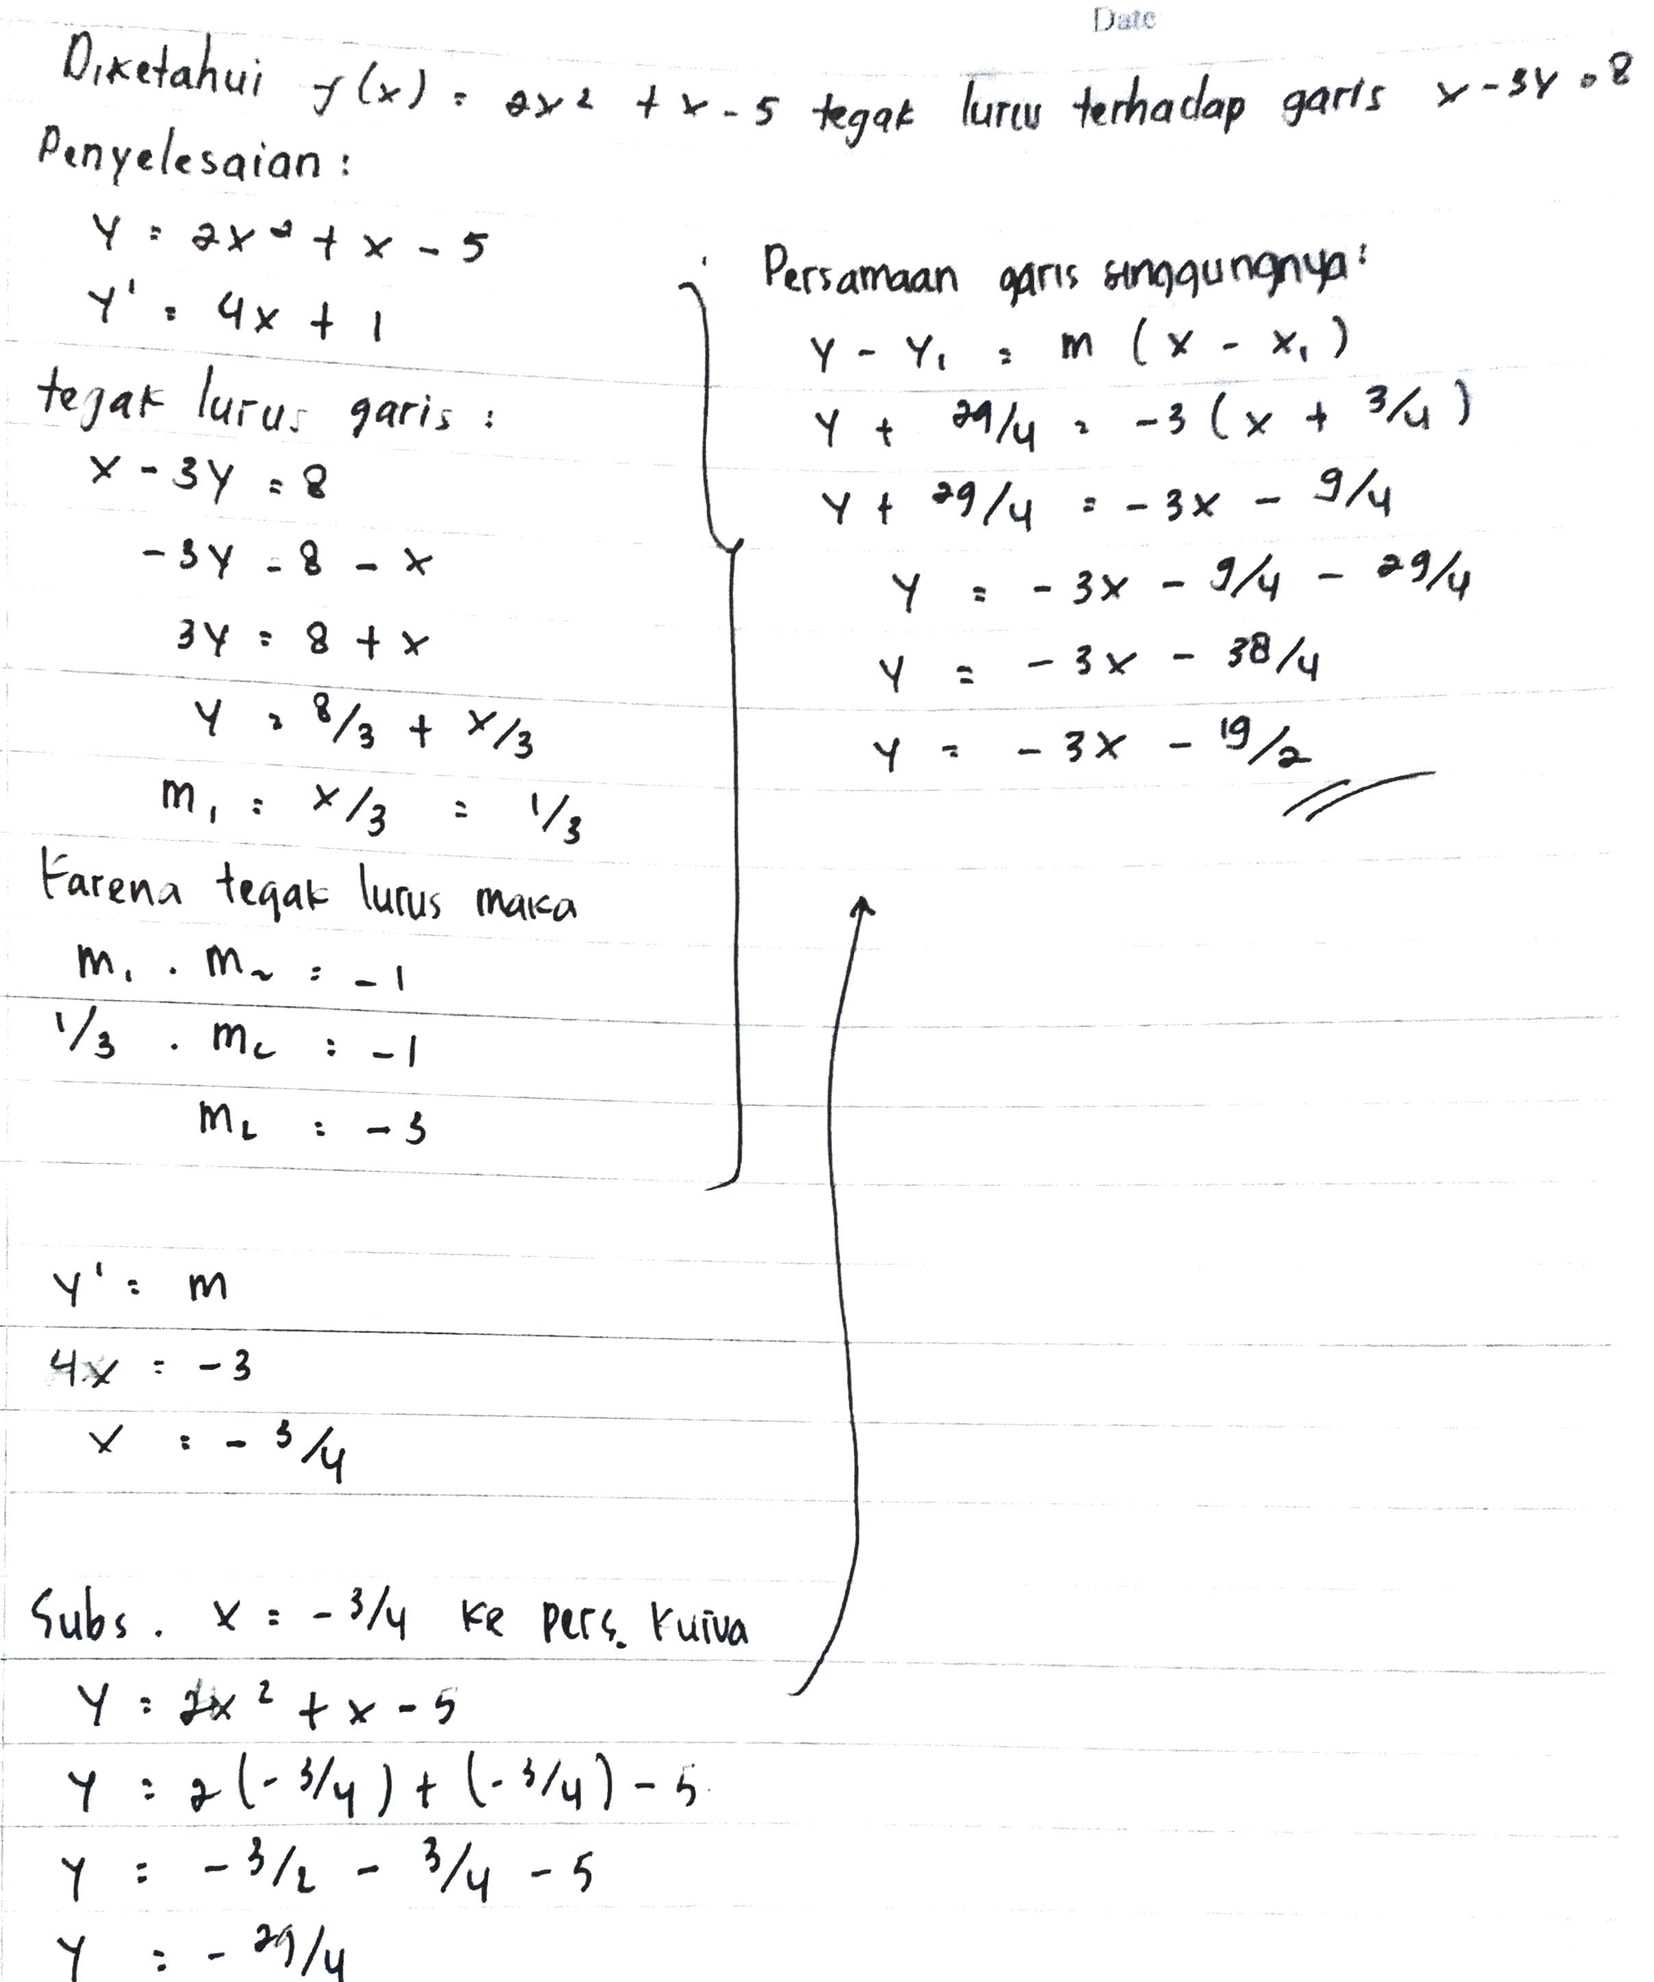 Date
Diketahui f(x) = 2x² + x - 5 tegak lurus terhadap garis x - 3y = 8
Penyelesaian :
y = 2x² + x - 5
y' = 4x + 1
tegak lurus garis :
x - 3y = 8
-3y = 8 - x
3y = 8 + x
y = 8/3 + x/3
m₁ = x/3 = 1/3
Karena tegak lurus maka
m₁ . m₂ = -1
1/3 . m₂ = -1
m₂ = -3
y' = m
4x = -3
x = - 3/4
Subs. x = - 3/4 ke pers. kurva
y = 2x² + x - 5
y = 2(- 3/4) + (- 3/4) - 5
y = - 3/2 - 3/4 - 5
y = - 29/4
Persamaan garis singgungnya :
y - y₁ = m (x - x₁)
y + 29/4 = -3 (x + 3/4)
y + 29/4 = -3x - 9/4
y = -3x - 9/4 - 29/4
y = -3x - 38/4
y = -3x - 19/2